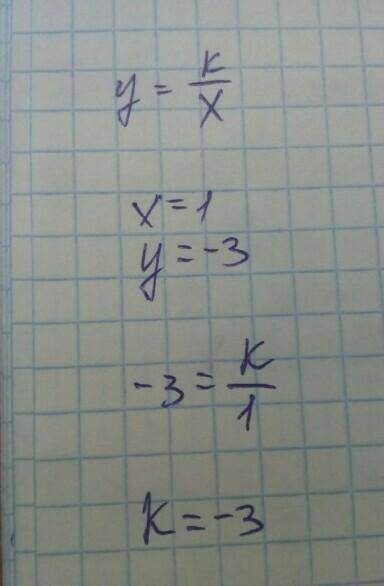 y = k/x
x = 1
y = -3
-3 = k/1
k = -3